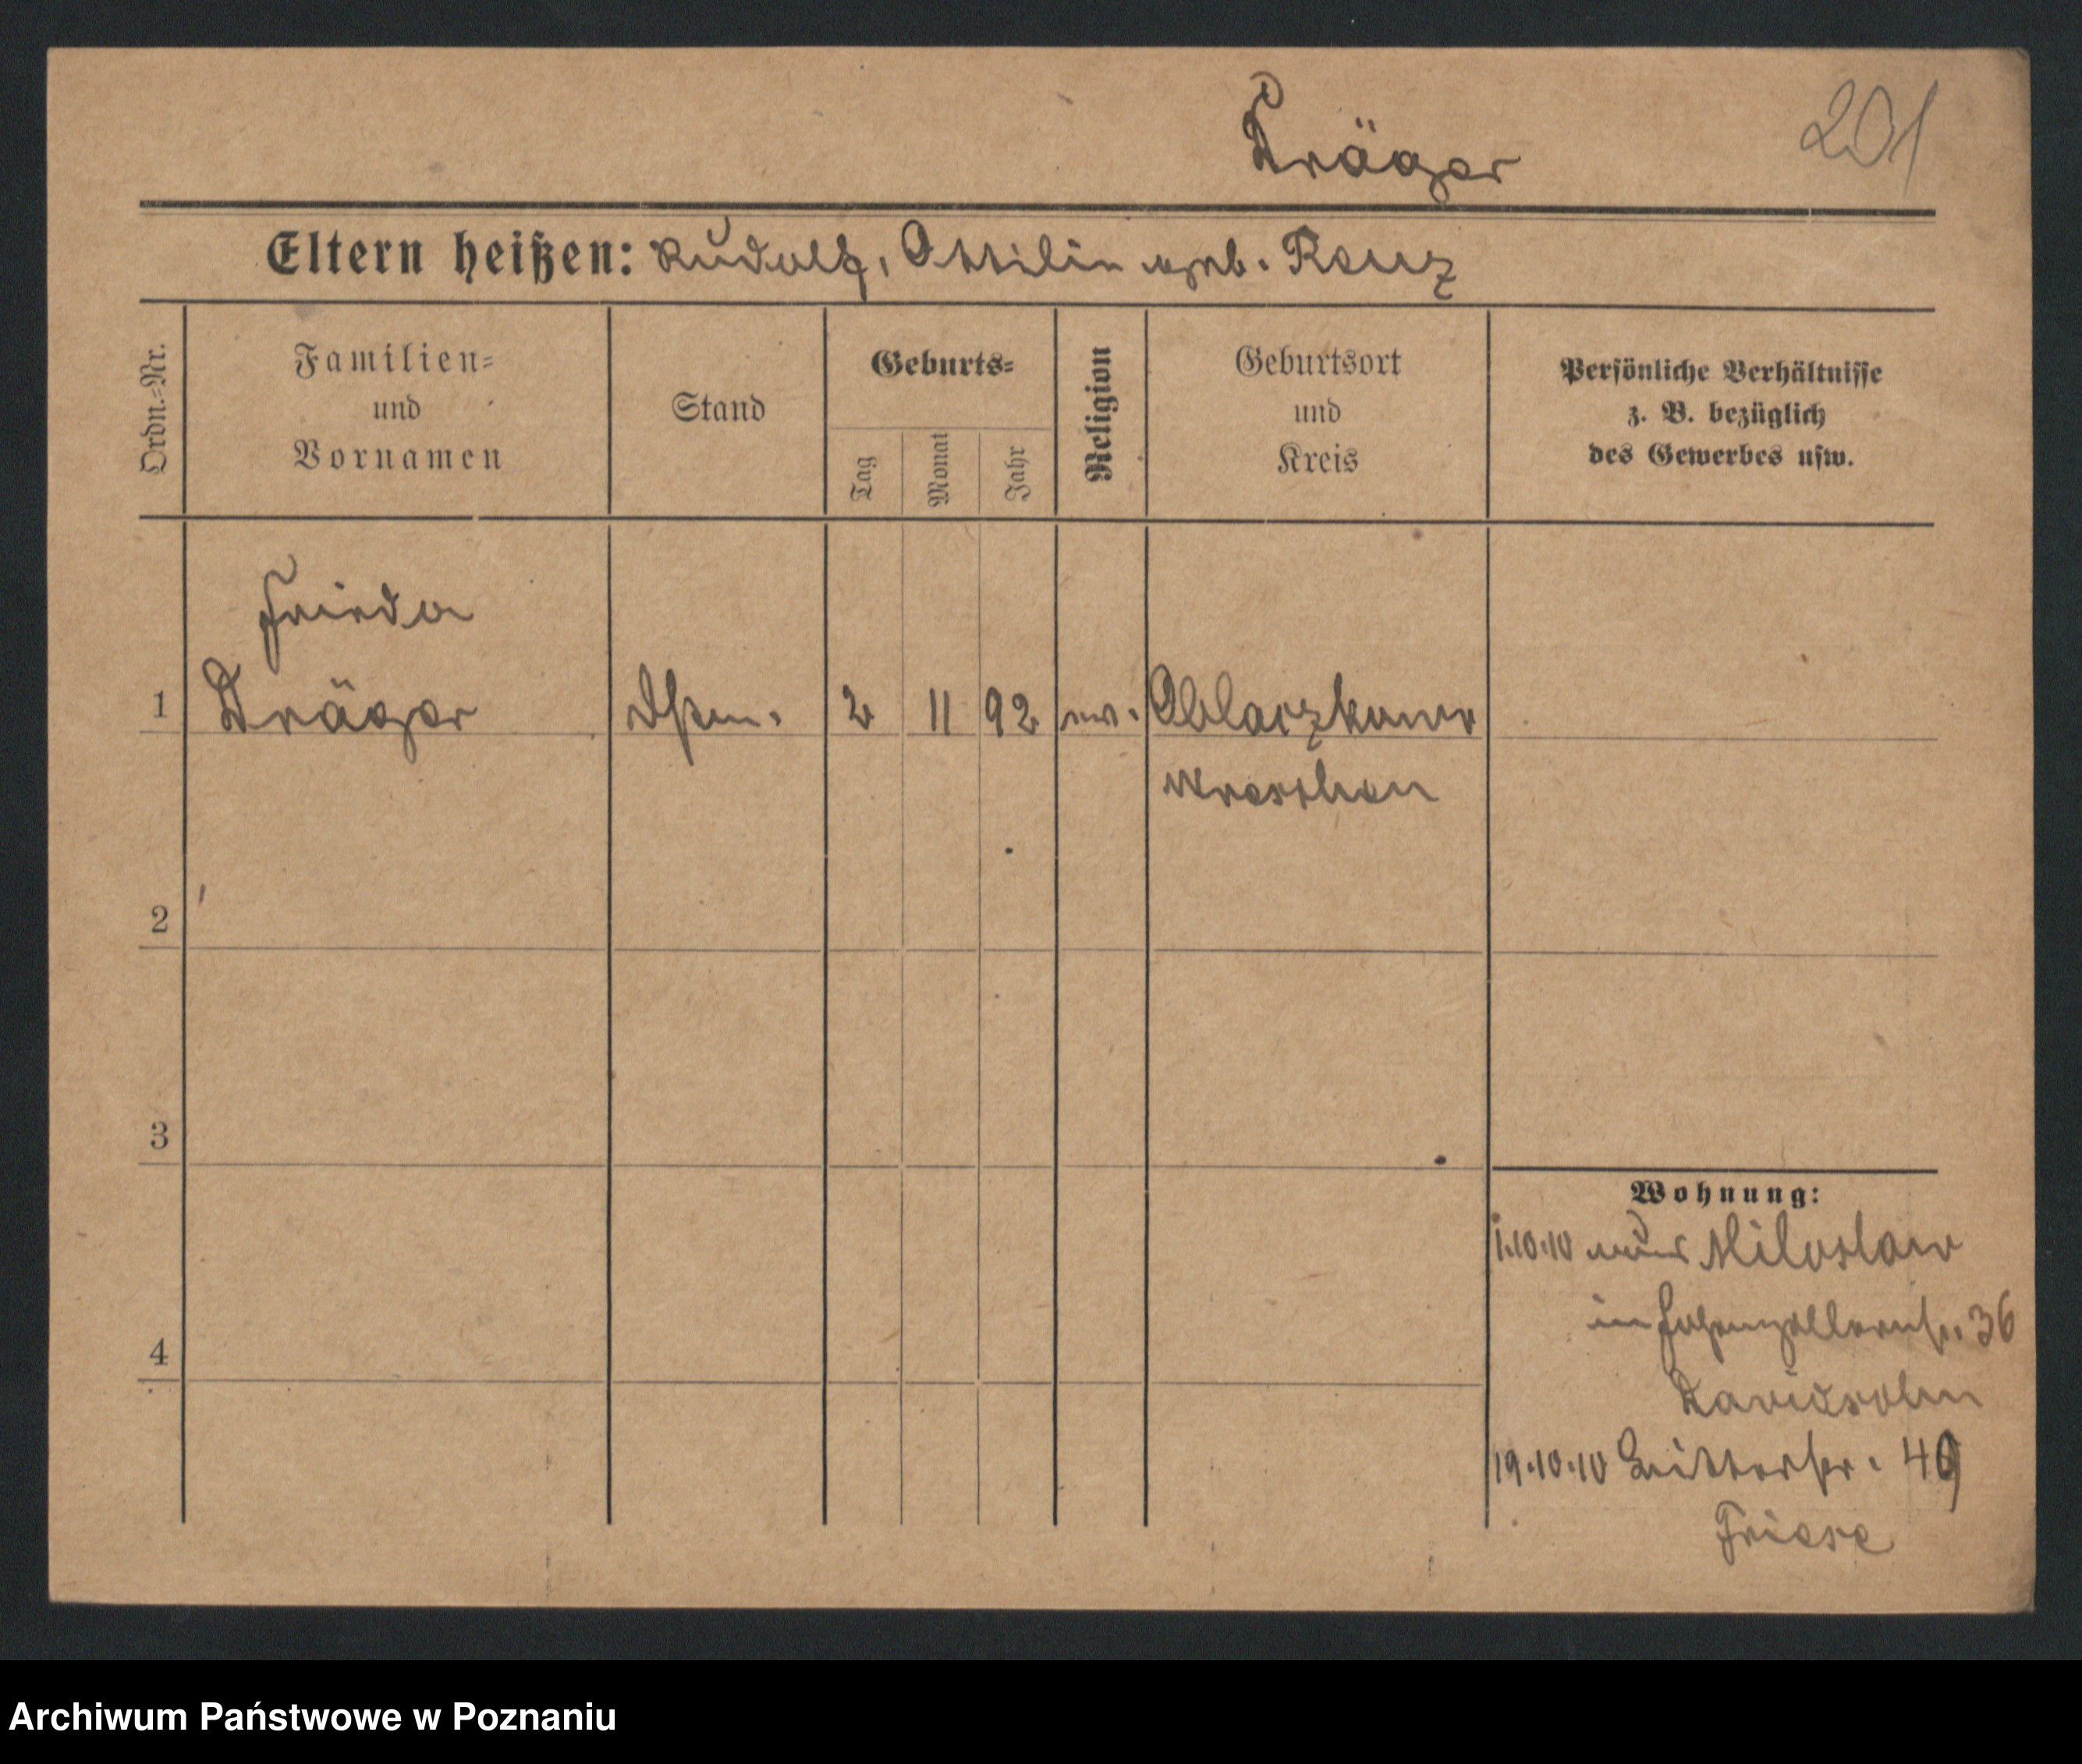 Dräger
201
Eltern heißen: Rudolf, Ottilie geb. Renz
Ordn.-Nr.
Familien-
und
Vornamen
Stand
Geburts-
Tag
Monat
Jahr
Religion
Geburtsort
und
Kreis
Persönliche Verhältnisse
z. B. bezüglich
des Gewerbes usw.
Frieda
1 Dräger 2 11 92 ev.
Wreschen
2
3
4
Wohnung:
1.10.10 aus Miloslaw
in Hohenzollernstr. 36
Davidsohn
19.10.10 49
Friese
Archiwum Państwowe w Poznaniu